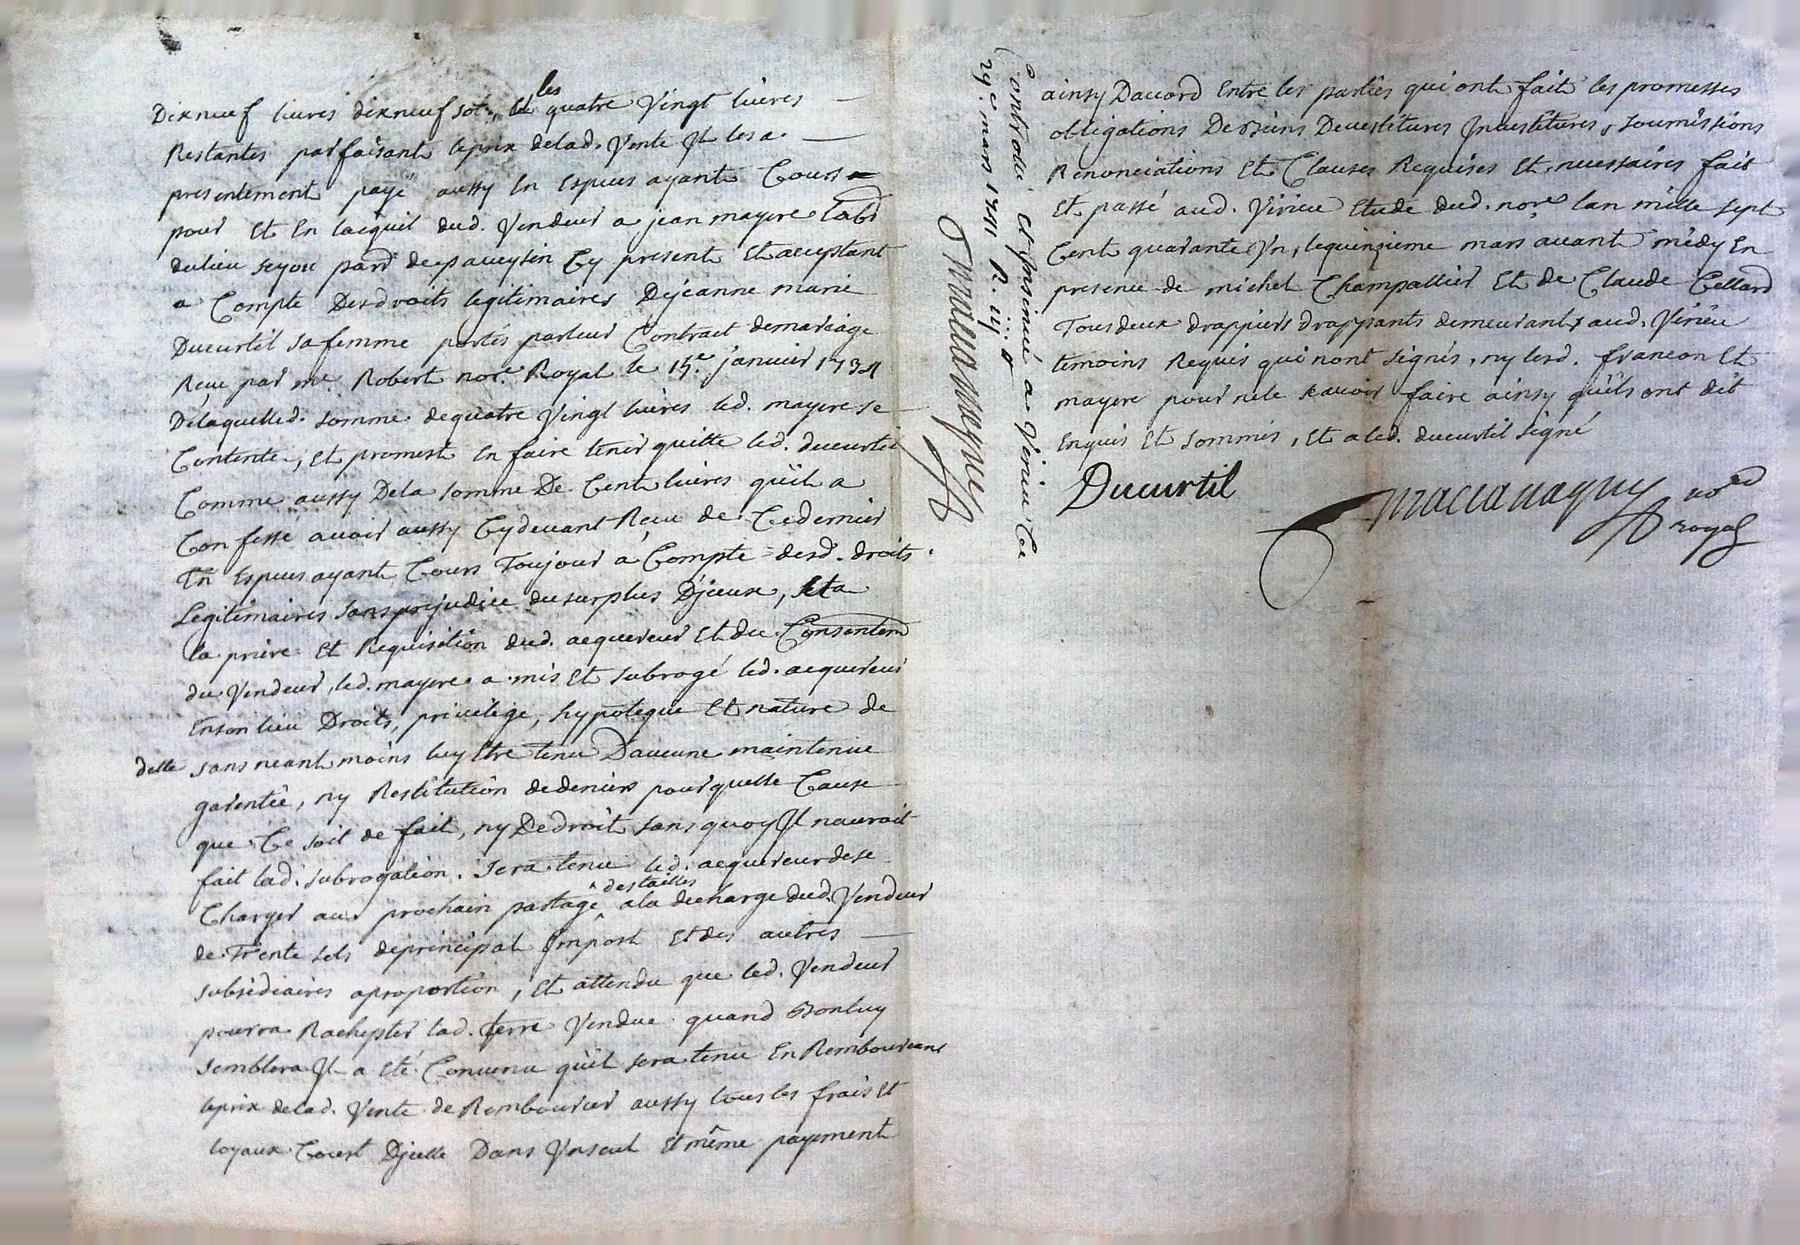 Dixneuf livres dixneuf sols, et les quatre Vingt livres
Restantes parfaisant leprix delad. Vente Il les a
presentement payé aussy En Especes ayant Cours
pour Et En lacquit dud. Vendeur a jean mayere labr
dulieu
a Compte Desdroits legitimaires Dejeanne marie
Ducurtil sa femme portés parleur Contract demariage
Reçu par me. Robert nore. Royal le 15e. janvier
Delaquelled. somme dequatre Vingt livres led. mayere se
Contente, et promest En faire tenir quitte led. ducurtil
Comme aussy Dela somme De Cent livres quil a
Confessé avoir aussy Cydevant Reçu de Cedernier
En Especes ayant Cours Toujour a Compte desd. droits
Legitimaires sans prejudice du surplus Djceux, Et a
la priere Et Requisition dud. acquereur Et du Consentem
du Vendeur, led. mayere a mis Et subrogé led. acquereur
Enson lieu Droits, privilege, hypoteque Et nature de
dette sans neant moins luy Etre tenu Daucune maintenue
garentie, ny Restitution dedeniers pour quelle Cause
que Ce soit de fait, ny De droit sans quoy Il nauroit
fait lad. subrogation. sera tenu led. acquereur de se
Charger au prochain partage des tailles a la decharge dud. Vendeur
de Trente sols deprincipal Impost Et des autres
subsidiaires aproportion, Et attendu que led. Vendeur
pourra Rachepter lad. terre Vendue quand Bonluy
semblera Il a Eté Convenu quil sera tenu En Remboursant
leprix delad. Vente de Rembourcer aussy tous les frais Et
loyaux Coust Djcelle Dans Vn seul Et même payement
Controllé et Insinué a Virieu Ce
29e. mars 1741 R.
ainsy Daccord Entre les parties qui ont fait les promesses
obligations De Biens Devestitures Investitures, soumissions
Renonciations Et Clauses Requises Et necessaires fait
Et passé aud. Virieu Etude dud. nore. lan mille sept
Cent quarante Vn, lequinzieme mars avant médy En
presence de michel Champallier Et de Claude Cellard
Tous deux drappiers drappants demeurants aud. Virieu
temoins Requis qui nont signés, ny lesd. francon Et
mayere pour nele scavoir faire ainsy quils ont dit
Enquis Et sommés, Et a led. ducurtil signé
Ducurtil
royal